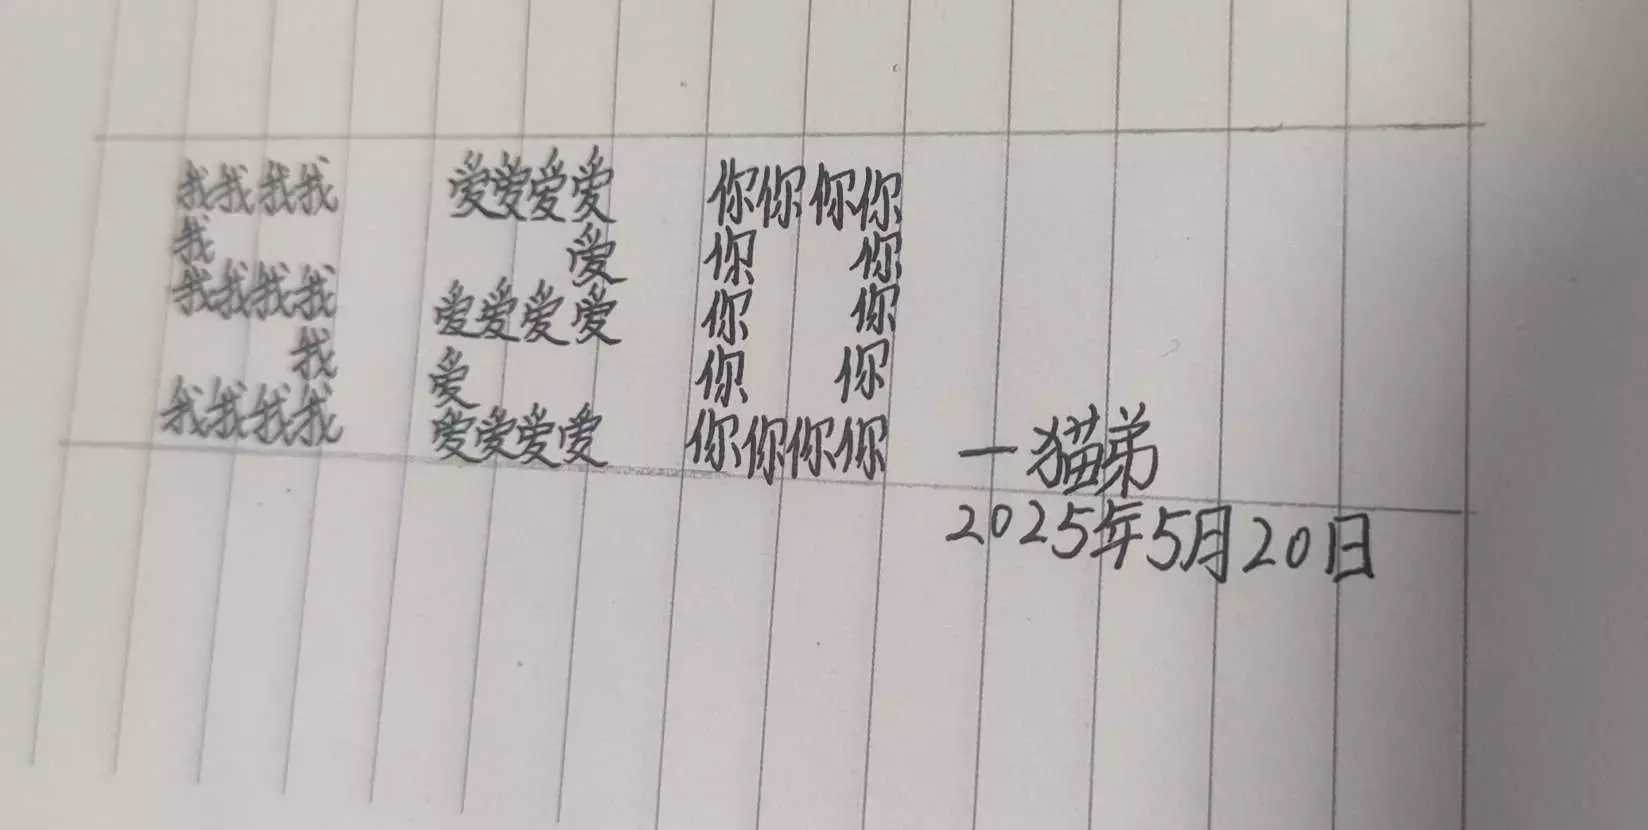 我我我我 爱爱爱爱 你你你你
我 爱 你 你
我我我我 爱爱爱爱 你 你
我 爱 你 你
我我我我 爱爱爱爱 你你你你
一猫弟
2025年5月20日